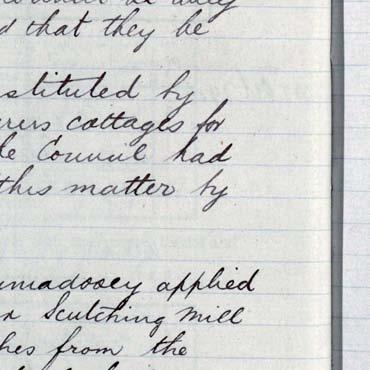 duly
d that they be
stituted by
rers cottages for
he Council had
this matter by
umadooey applied
Scutching Mill
hes from the